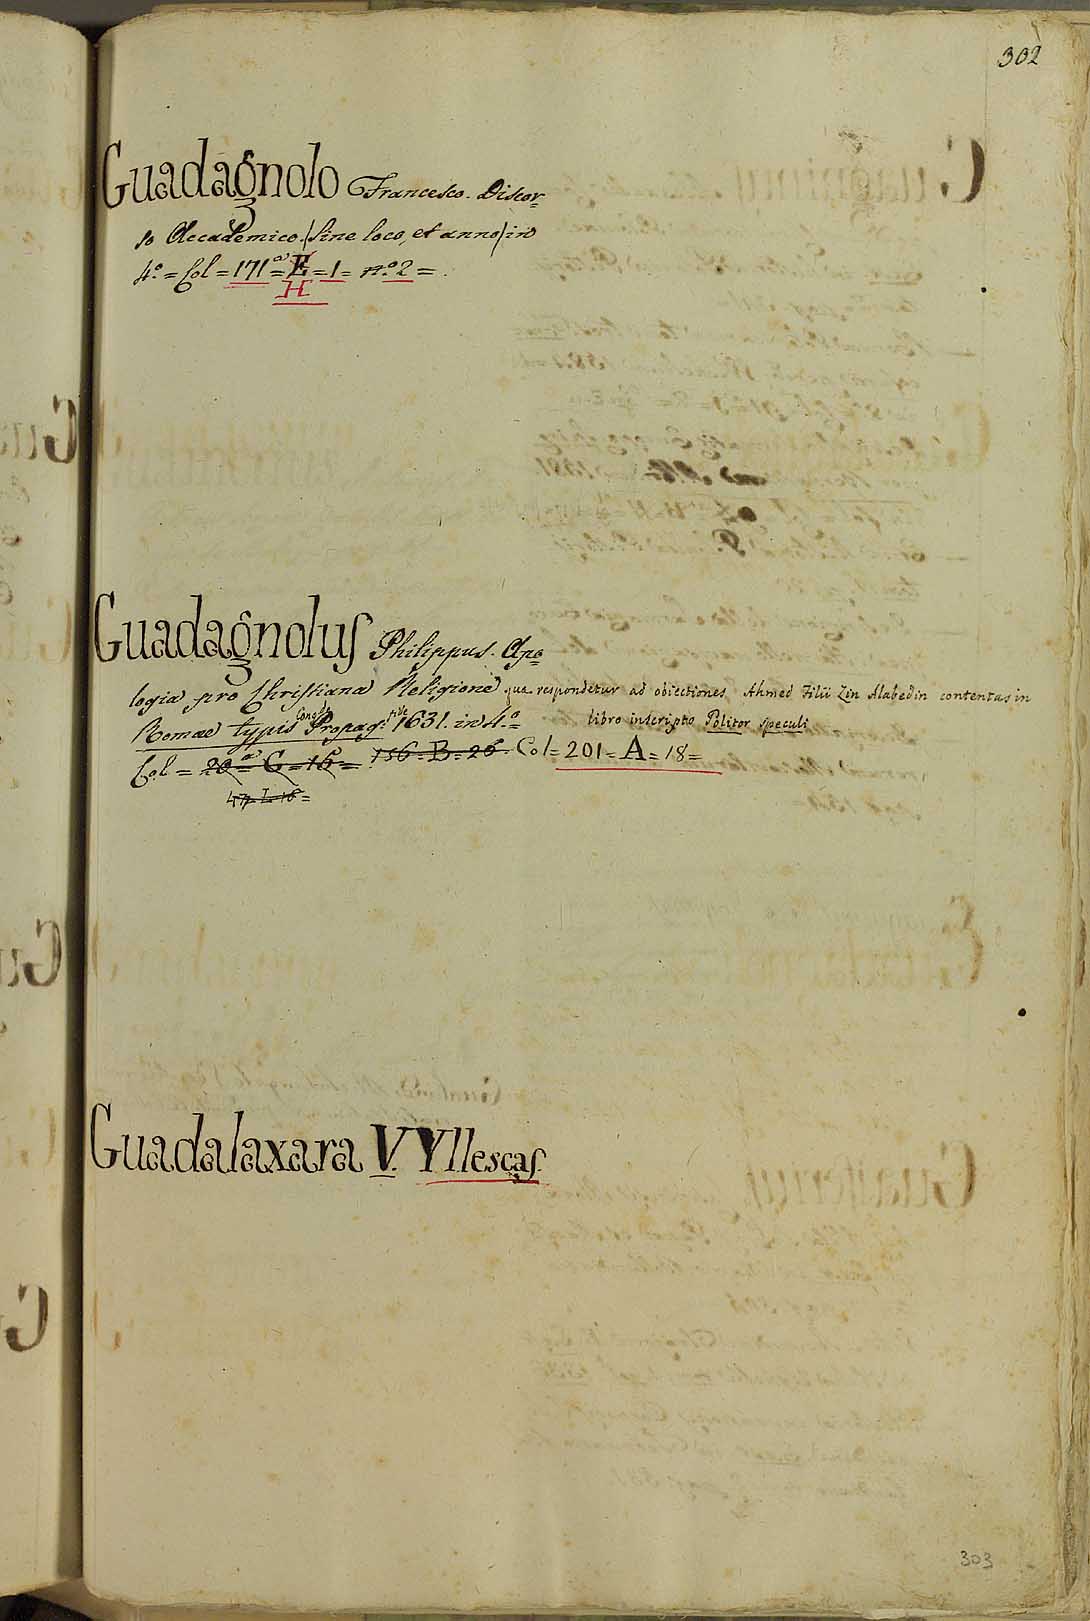 302
Guadagnolo Francesco. Discor=
so Accademico. (Sine loco, et anno) in
4.º = Col = 171ª = E = 1 = n.º 2 = .
H
Guadagnolus Philippus. Apo=
logia pro Christiana Religione qua respondetur ad obiectiones Ahmed Filii Zin Alabedin contentas in
Romae typis Propag. 1631. in 4.º libro inscripto Politor speculi
Col = 20ª = C = 16 = 156 = B = 26 Col = 201 = A = 18 =
Guadalaxara V. Yllescas.
303